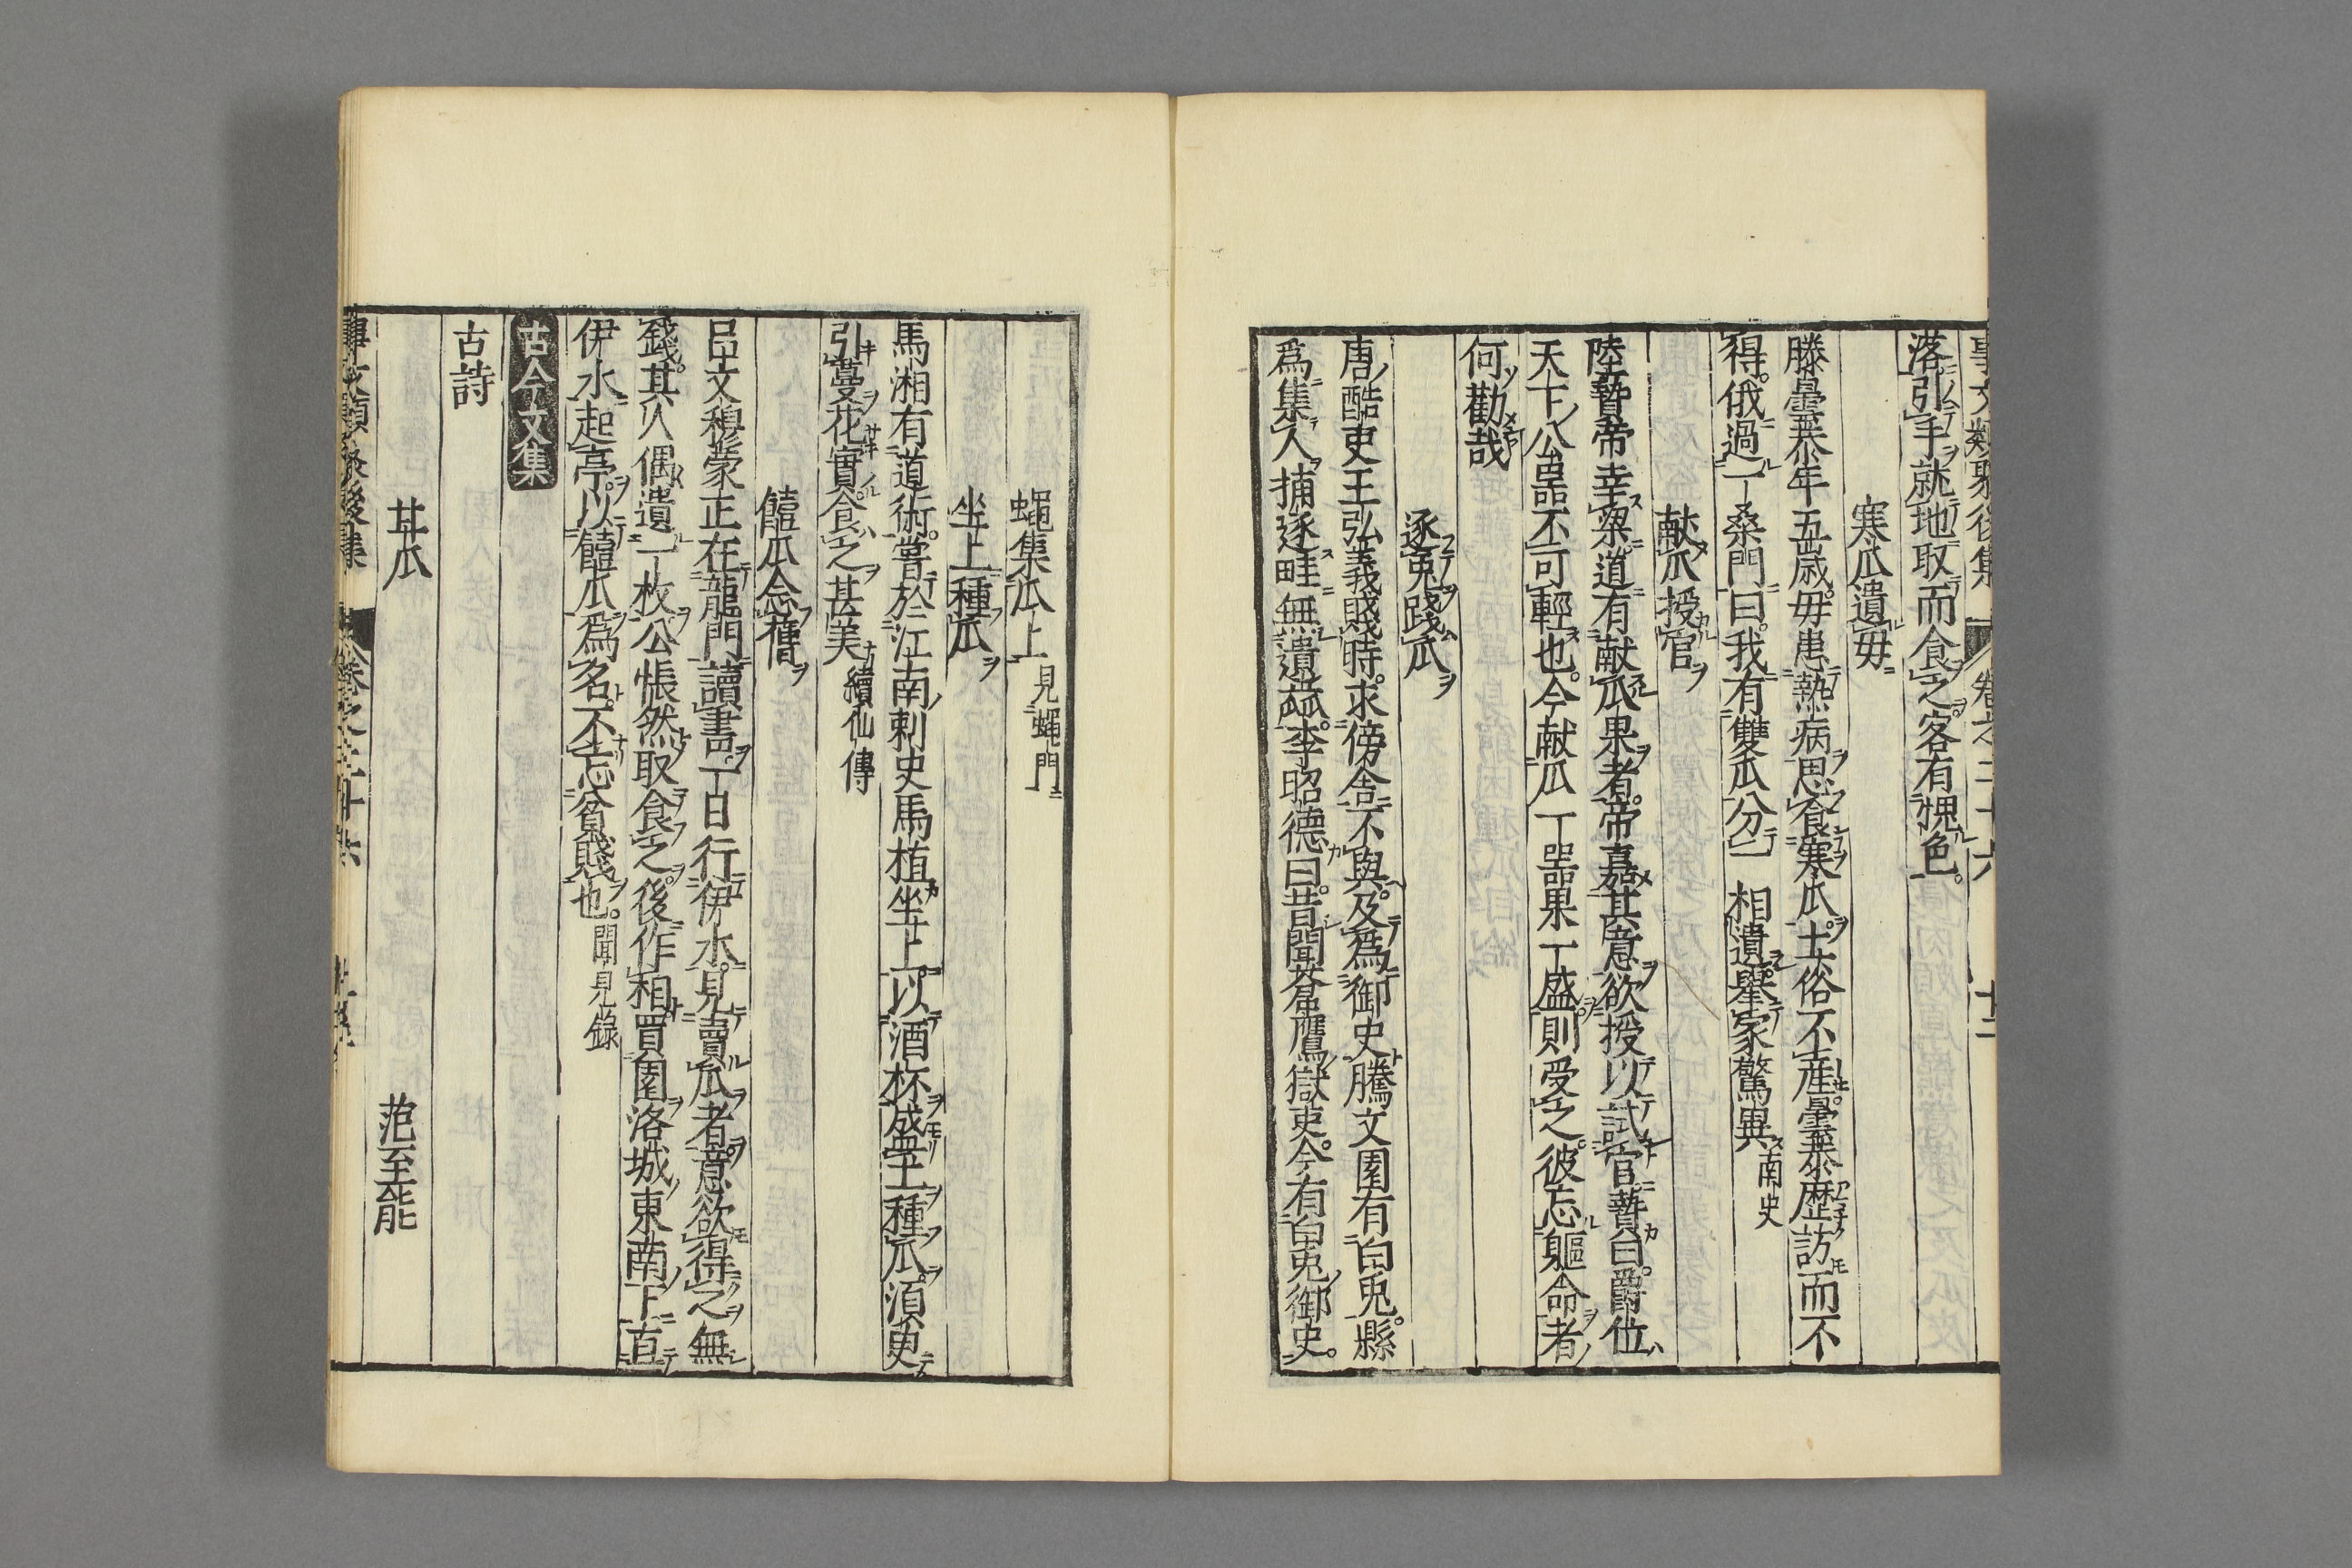 事文類聚後集 卷之二十六 十二
落引手就地取而食之客有愧色
寒瓜遺母
滕曇恭年五歳母患熱病思食寒瓜土俗不産曇恭歴訪而不
得俄過一桑門曰我有雙瓜分一相遺擧家驚異南史
献瓜授官
陸贄帝幸梁道有献瓜果者帝嘉其意欲授以試官贄曰爵位
天下公噐不可輕也今献瓜一噐果一盛則受之彼忘軀命者
何勸哉
逐兎踐瓜
唐酷吏王弘義賤時求傍舎瓜不與及爲御史騰文園有白兎縣
爲集人捕逐畦無遺蓏李昭德曰昔聞蒼鷹獄吏今有白兎御史
蠅集瓜上見蠅門
坐上種瓜
馬湘有道術嘗於江南刺史馬植坐上以酒杯盛土種瓜湏臾
引蔓花實食之甚美續仙傳
饐瓜念舊
吕文穆蒙正在龍門讀書一日行伊水見賣瓜者意欲得之無
錢其人偶遺一枚公悵然取食之後作相買園洛城東南下直
伊水起亭以饐瓜爲名不忘貧賤也聞見録
古今文集
古詩
甘瓜 范至能
事文類聚後集 卷之二十六